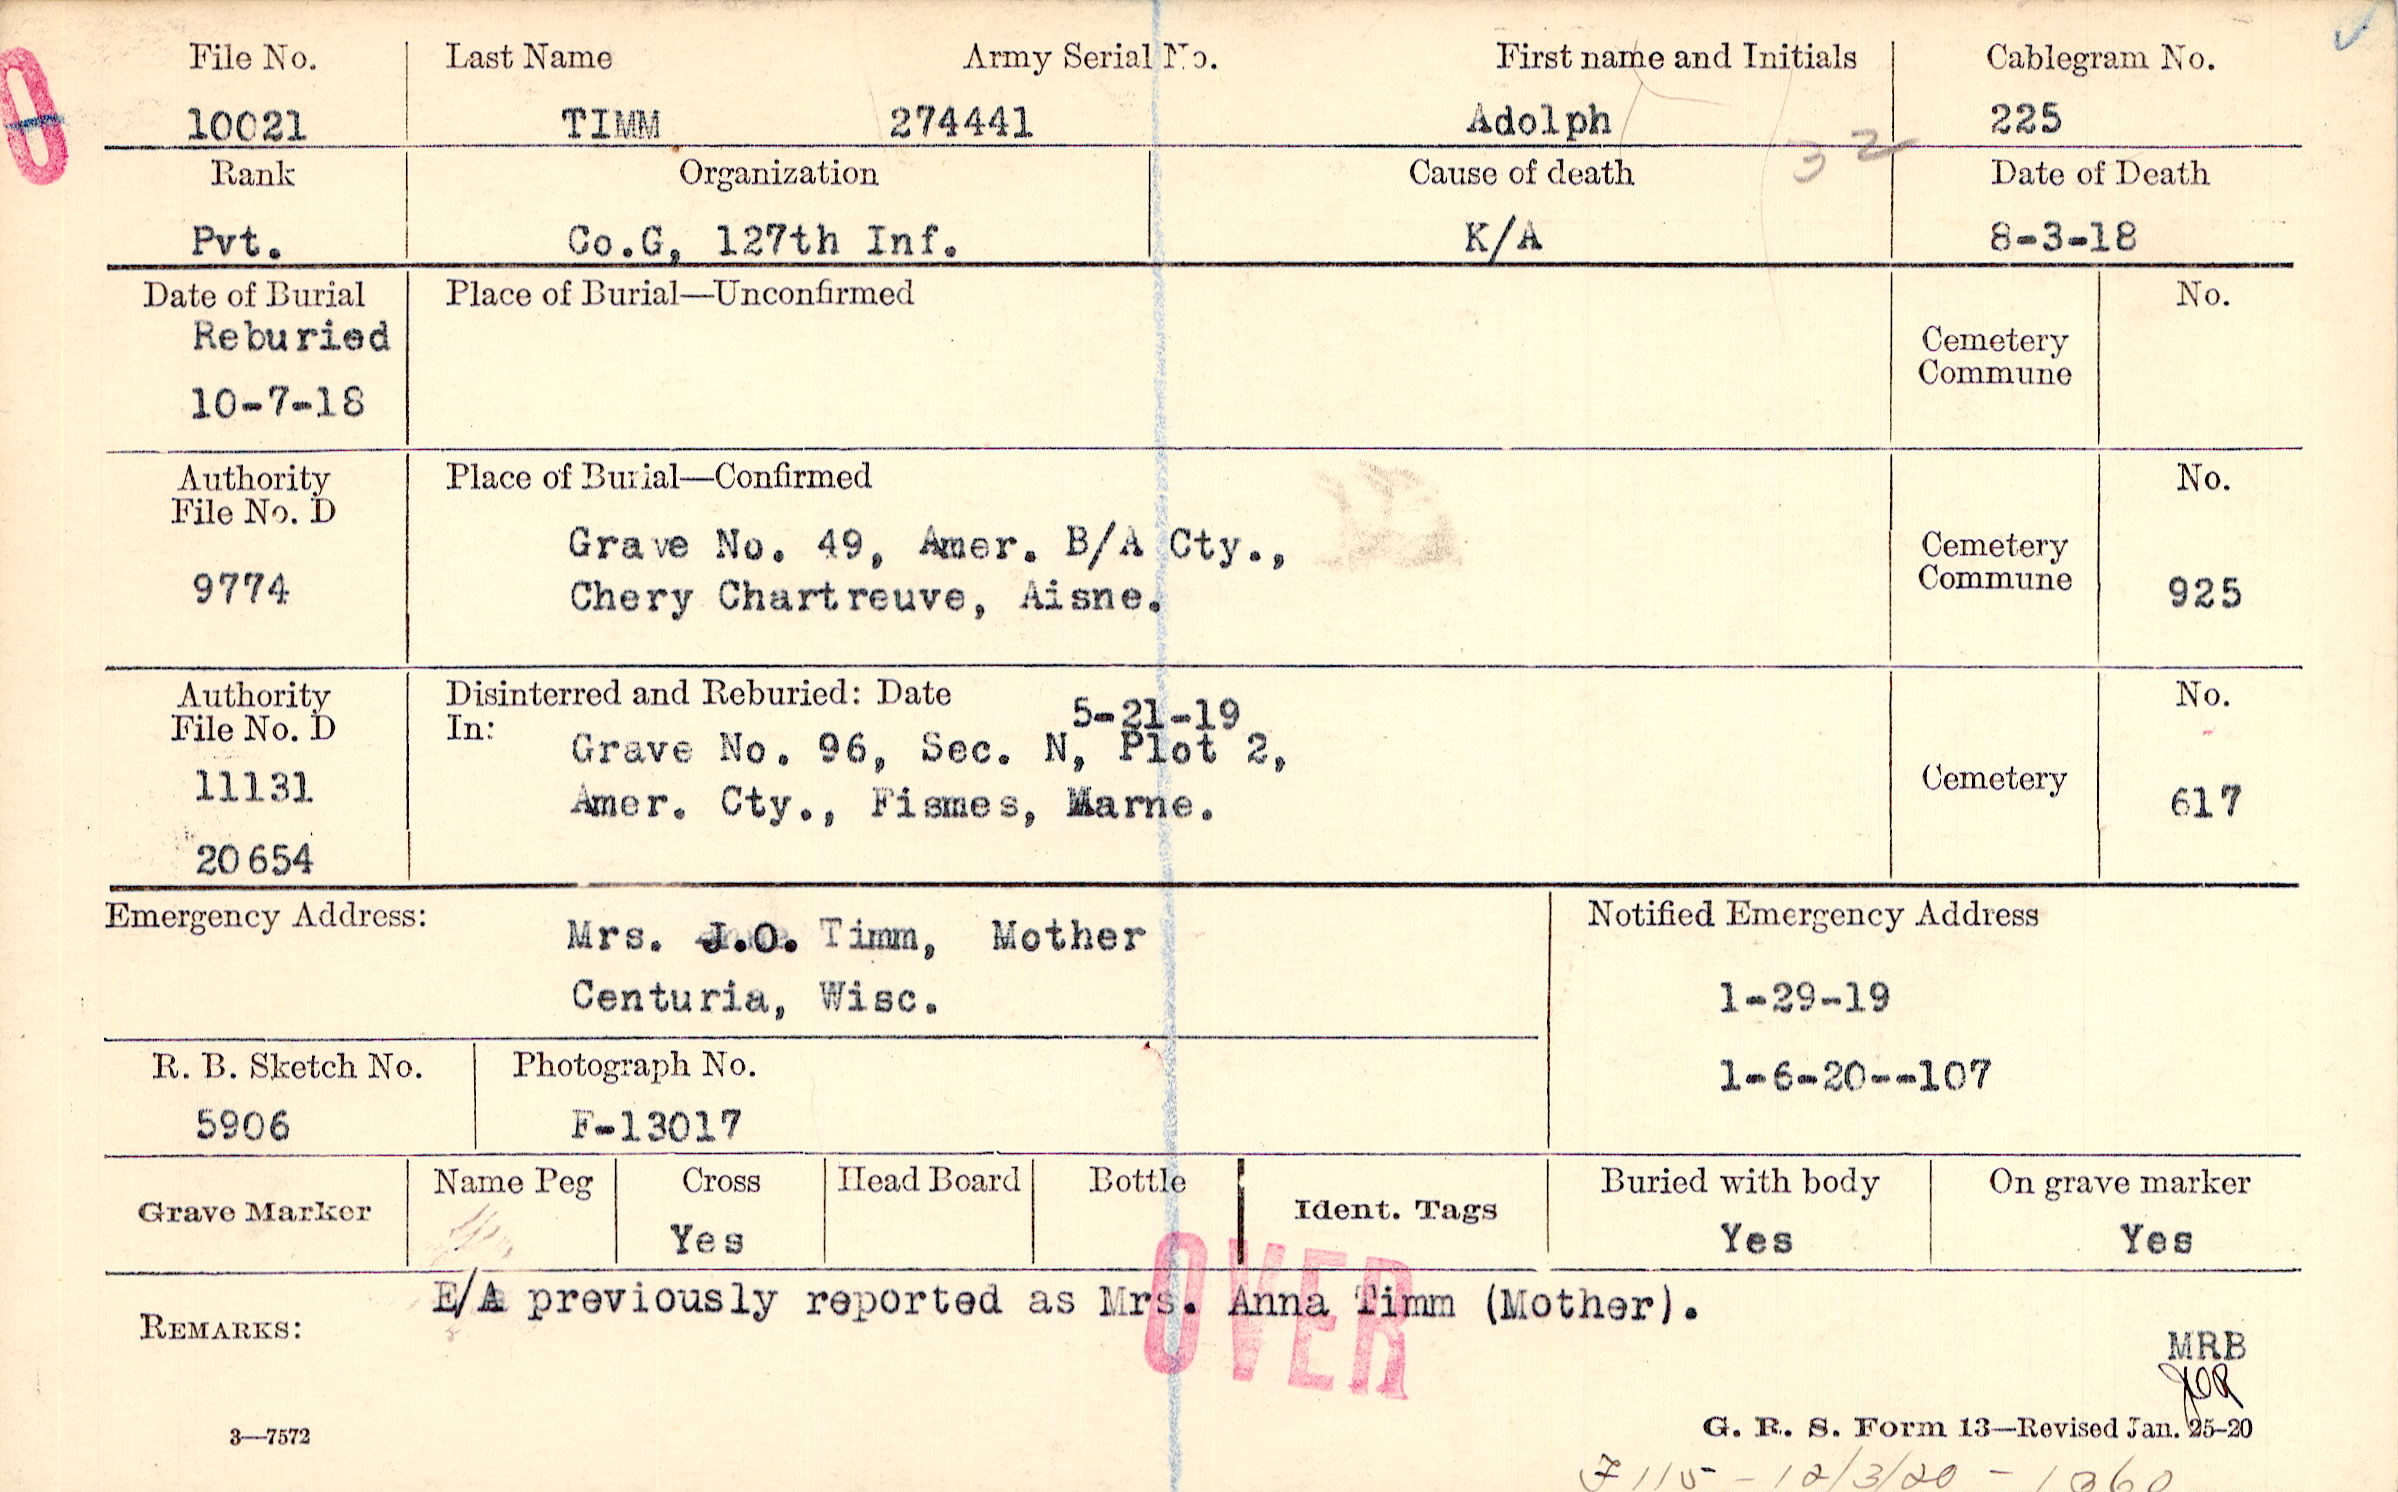 File No. Last Name Army Serial No. First name and Initials Cablegram No.
10021 TIMM 274441 Adolph 225
32
Rank Organization Cause of death Date of Death
Pvt. Co.G, 127th Inf. K/A 8-3-18
Date of Burial Place of Burial—Unconfirmed No.
Reburied
10-7-18
Cemetery
Commune
Authority Place of Burial—Confirmed No.
File No. D
9774
Grave No. 49, Amer. B/A Cty.,
Chery Chartreuve, Aisne.
Cemetery
Commune
925
Authority Disinterred and Reburied: Date 5-21-19 No.
File No. D In:
11131
20654
Grave No. 96, Sec. N, Plot 2,
Amer. Cty., Fismes, Marne.
Cemetery 617
Emergency Address: Mrs. J.O. Timm, Mother
Centuria, Wisc.
Notified Emergency Address
1-29-19
1-6-20--107
R. B. Sketch No. Photograph No.
5906 F-13017
Grave Marker Name Peg Cross Head Board Bottle Ident. Tags Buried with body On grave marker
Yes Yes Yes
OVER
REMARKS: E/A previously reported as Mrs. Anna Timm (Mother).
MRB
3—7572
G. R. S. Form 13—Revised Jan. 25-20